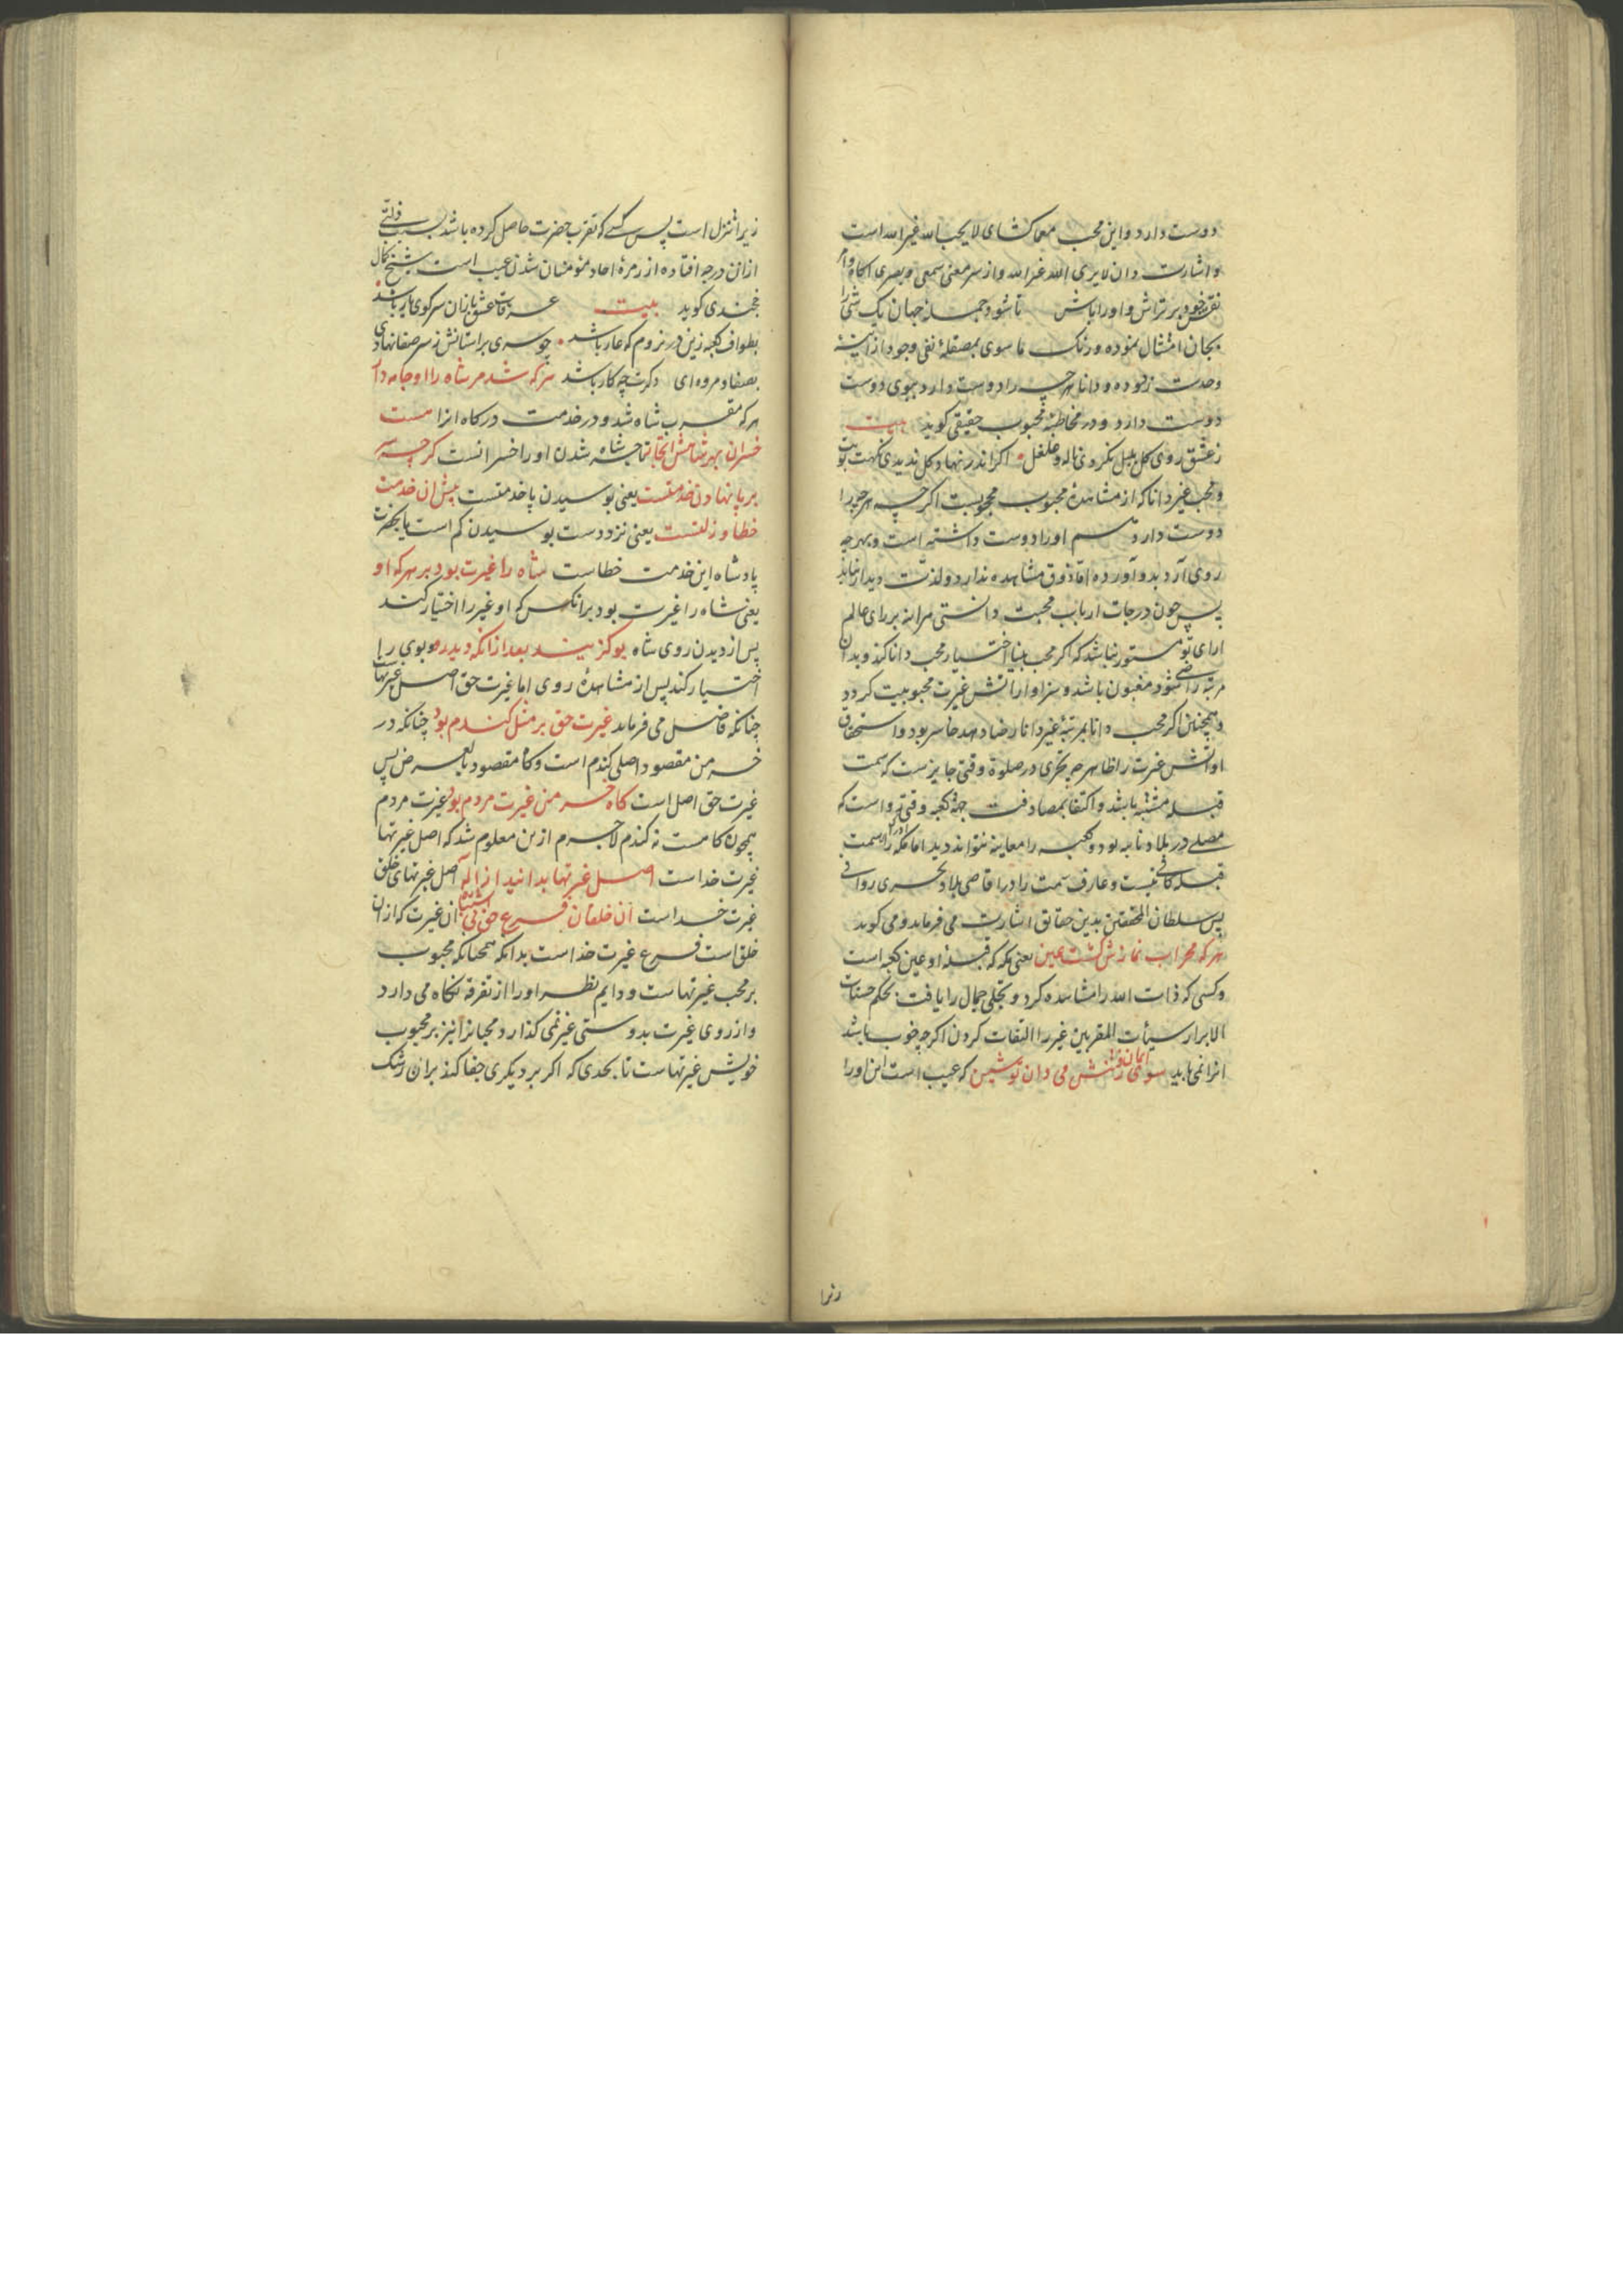 دوست دارد و این محب معما کشای لا یحب الله غیر الله است
و اشارت دان لا یری الله غیر الله و از سر معنی سمعی و بصری اکاه و امر
نقش خود بر تراش و او را باش تا شود جمله جهان یک شی را
بجان امتثال نموده و رنک ما سوی بمصقلهٔ نفی وجود از آیینهٔ
وحدت زدوده و دانا هر چه را دوست دارد ببوی دوست
دوست دارد و در مخاطبهٔ محبوب حقیقی کوید بیت
ز عشق روی کل بلبل نکردی ناله و غلغل اکر اندر نهاد کل ندیدی نکهت بویت
و محب غیر دانا که از مشاهدهٔ محبوب محجوبست اکر چه هر چه را
دوست دارد هم او را دوست داشته است و بهر چه
روی آرد بدو آورده اما ذوق مشاهده ندارد و لذت دیدار نیابد
پس چون درجات ارباب محبت دانستی هر اینه بر رای عالم
ارای تو مستور نباشد که اکر محب بینا اختیار محب دانا کند و بدان
مرتبه راضی شود مغبون باشد و سزاوار اتش غیرت محبوبیت کردد
و همچنین اکر محب دانا بمرتبهٔ غیر دانا رضا دهد خاسر بود و استحقاق
او اتش غیرت را ظاهر چه تحری در صلوة وقتی جایزست که سمت
قبله مشتبه باشد و اکتفا بمصادفت جهة کعبه وقتی رواست که
مصلی در بلاد نابیه بود و کعبه را معاینه نتواند دید اما در مکه سمت
قبله کافی نیست و عارف سمت را در اقاصی بلاد تحری روا نی
پس سلطان المحققین بدین حقایق اشارت می فرماید و می کوید
هر که محراب نمازش کشت عین یعنی مکه که قبلهٔ او عین کعبه است
و کسی که ذات الله را مشاهده کرد و تجلی جمال را یافت بحکم حسنات
الابرار سیئات المقربین غیر را التفات کردن اکر چه خوب باشد
انرا نمی باید سوی ایمان رفتنش می دان تو شین که عیب است این او را
زیرا
زیرا تنزل است پس کسی که تقرب حضرت حاصل کرده باشد بسبب ذلتی
ازان درجه افتاده از زمرهٔ احاد مؤمنان شدن عیب است شیخ کمال
خجندی کوید بیت عرفات عشق بازان سر کوی یار باشد
بطواف کعبه زین در نروم که عار باشد چو سری بر استانش ز سر صفا نهادی
بصفا و مروه ای دل دکرت چه کار باشد هر که شد مر شاه را او جامه دار
هر که مقرب شاه شد و در خدمت درکاه انرا هست
خسران بهر شاهش اتجار تاجر شاه شدن او را خسرانست کر چه سر
بر پا نهادن خدمتست یعنی بوسیدن پا خدمتست پیش ان خدمت
خطا و زلتست یعنی نزد دست بوسیدن کم است بلکه بحضرت
پادشاه این خدمت خطاست شاه را غیرت بود بر هر که او
یعنی شاه را غیرت بود بر انکس که او غیر را اختیار کند
پس از دیدن روی شاه بو کزیند بعد از انکه دید رو بوی را
اختیار کند پس از مشاهدهٔ روی اما غیرت حق اصل غیرتهاست
چنانکه فاضل می فرماید غیرت حق بر مثل کندم بود چنانکه در
خرمن مقصود اصلی کندم است و کاه مقصود بالعرض پس
غیرت حق اصل است کاه خرمن غیرت مردم بود غیرت مردم
همچون کاهست نه کندم لاجرم ازین معلوم شد که اصل غیرتها
غیرت خداست اصل غیرتها بدانید از اله اصل غیرتهای خلق
غیرت خداست آن خلقان فرع حق بی اشتباه ان غیرت که از ان
خلق است فرع غیرت خداست بدانکه همچنانکه محبوب
بر محب غیرتهاست و دایم نظر او را از تفرقه نکاه می دارد
و از روی غیرت بدوستی غیر نمی کذارد محبانرا نیز بر محبوب
خویش غیرتهاست تا بحدی که اکر بر دیکری جفا کند بران رشک